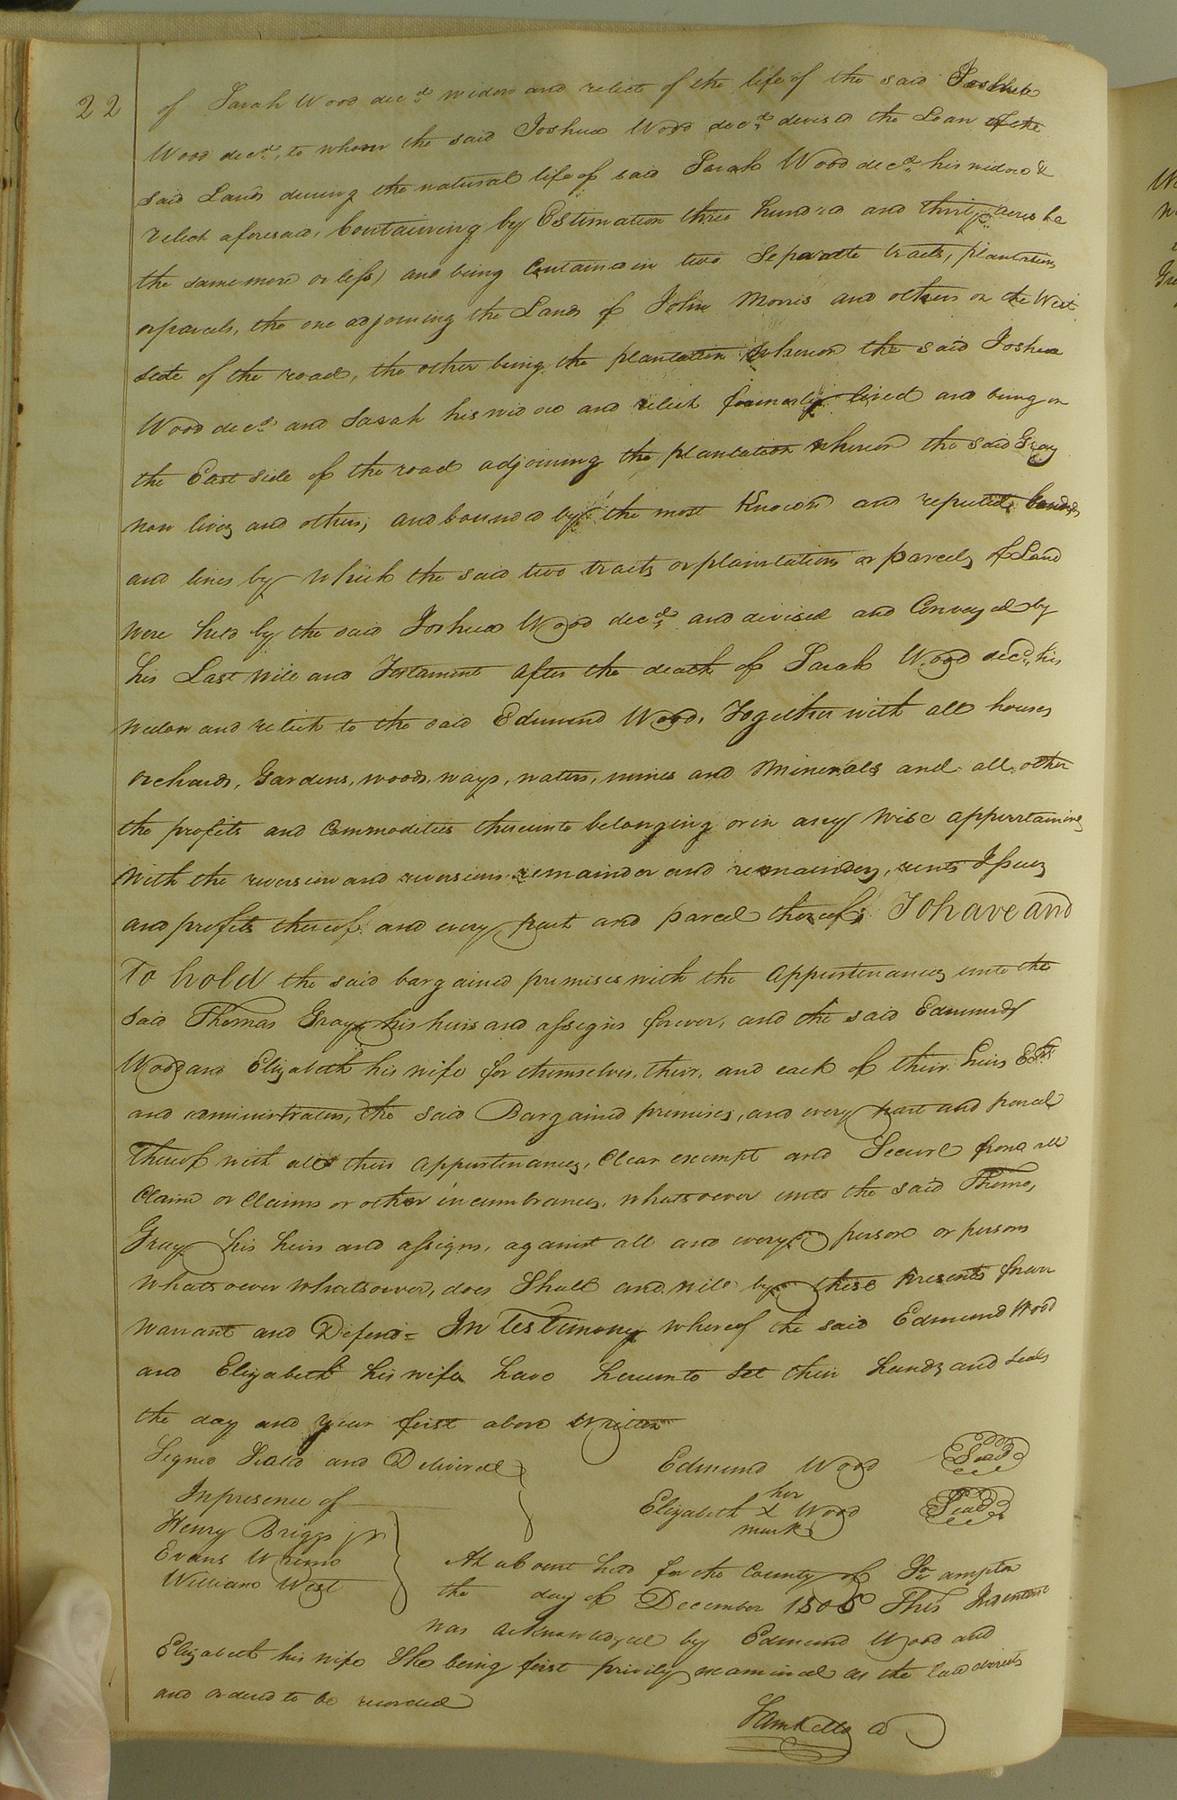 22
of Sarah Wood decd. widow and relict of the life of the said Joshua
Wood decd., to whom the said Joshua Wood decd. devised the Loan of the
said Lands during the natural life of said Sarah Wood decd. his widow &
relict aforesaid, Containing by Estimation three hundred and thirty acres be
the same more or less) and being Contained in two Separate tracts, plantations
or parcels, the one adjoining the Lands of John Morris and others on the West
side of the road, the other being the plantation whereon the said Joshua
Wood decd. and Sarah his widow and relict formerly lived and being on
the East side of the road adjoining the plantation whereon the said Gray
now lives and others, and bounded by the most Known and reputed bounds
and lines by which the said two tracts or plantations or parcels of Land
were held by the said Joshua Wood decd. and devised and Conveyed by
his Last will and Testament after the death of Sarah Wood decd. his
widow and relict to the said Edmund Wood, Together with all houses
orchards, Gardens, woods, ways, waters, mines and Minerals and all other
the profits and Commodities thereunto belonging or in any Wise appertaining
With the reversion and reversions remainder and remainders, rents Issues
and profits thereof and every part and parcel thereof; To have and
To hold the said bargained premises with the appurtenances unto the
said Thomas Gray his heirs and assigns forever, and the said Edmund
Wood and Elizabeth his wife for themselves, their, and each of their heirs Exrs
and administrators, the said Bargained premises, and every part and parcel
thereof with all their appurtenances, Clear exempt and Secure from all
Claim or Claims or other incumbrances, whatsoever unto the said Thomas
Gray his heirs and assigns, against all and every person or persons
whatsoever whatsoever, does Shall and will by these Presents forever
warrant and Defend = In Testimony whereof the said Edmund Wood
and Elizabeth his wife have hereunto Set their hands and seals
the day and year first above Written
Signed Seald and Delivered
In presence of
Henry Briggs jr
Evans
William West
Edmund Wood Seal
her
Elizabeth X Wood Seal
mark
At a Court held for the County of So. ampton
the day of December 1805 This Indenture
was acknowledged by Edmund Wood and
Elizabeth his wife She being first privily examined as the law directs
and ordered to be recorded
Saml Kello